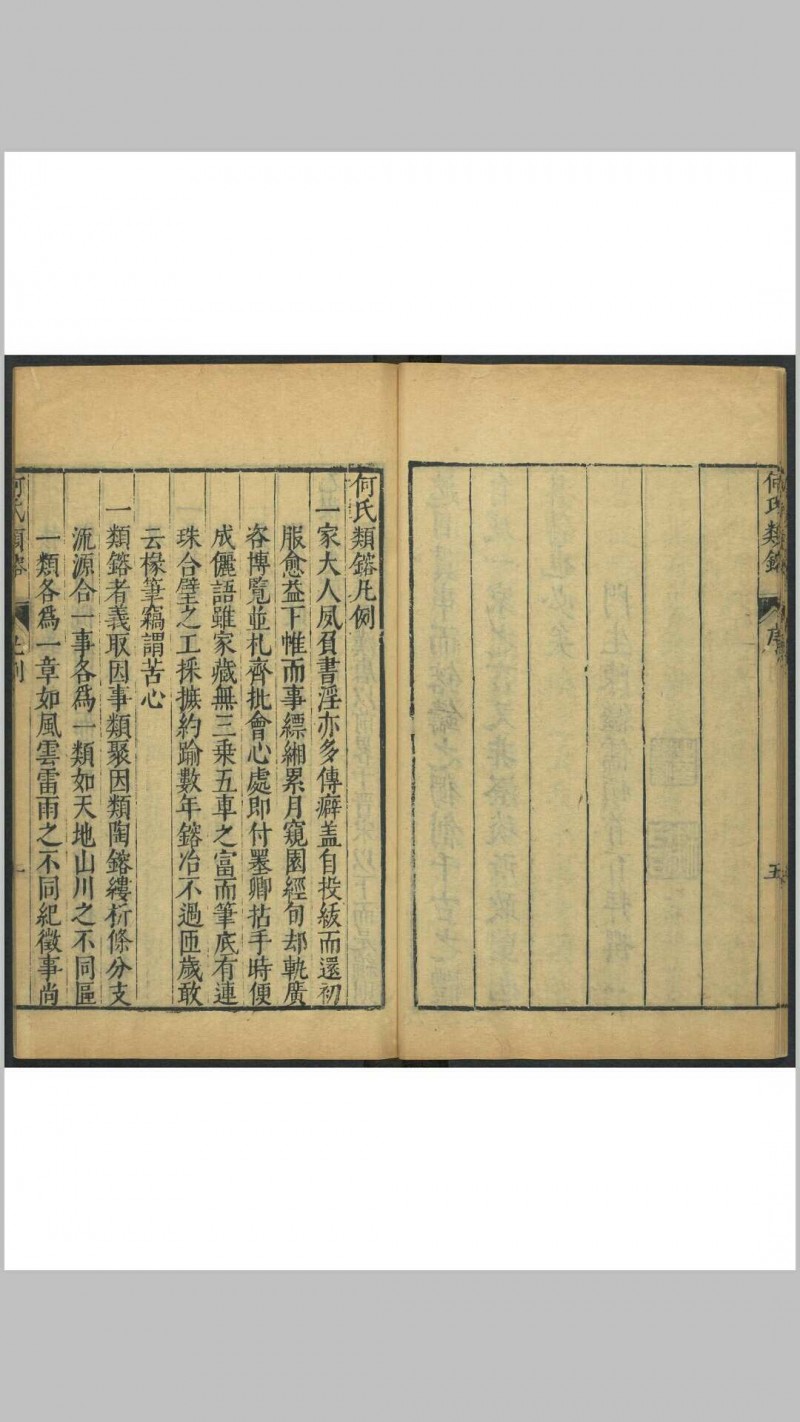 何氏類鎔
序
五
何氏類鎔凡例
一家大人夙負書淫亦多傳癖盖自投紱而還初
服愈益下帷而事縹緗累月窺園經旬却軌廣
咨博覽並札齊批會心處即付墨卿拈手時便
成儷語雖家藏無三乘五車之富而筆底有連
珠合璧之工採摭約踰數年鎔冶不過匝歲敢
云椽筆竊謂苦心
一類鎔者義取因事類聚因類陶鎔縷析條分支
流源合一事各爲一類如天地山川之不同區
一類各爲一章如風雲雷雨之不同紀徵事尚
何氏類鎔
凡例
一